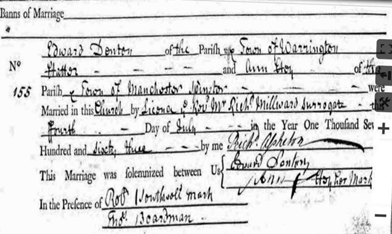 Banns of Marriage
Edward Denton of the Parish of Town of Warrington
No Hatter and Ann Hoy of the
155 Parish of Town of Manchester Spinster were
Married in this Church by Licence Revd Mr Richd Millward Surrogate
fourth Day of July in the Year One Thousand Sev
Hundred and Sixty three by me Richd
This Marriage was solemnized between Us Edward Denton
Ann Hoy her Mark
In the Presence of Robt mark
Boardman